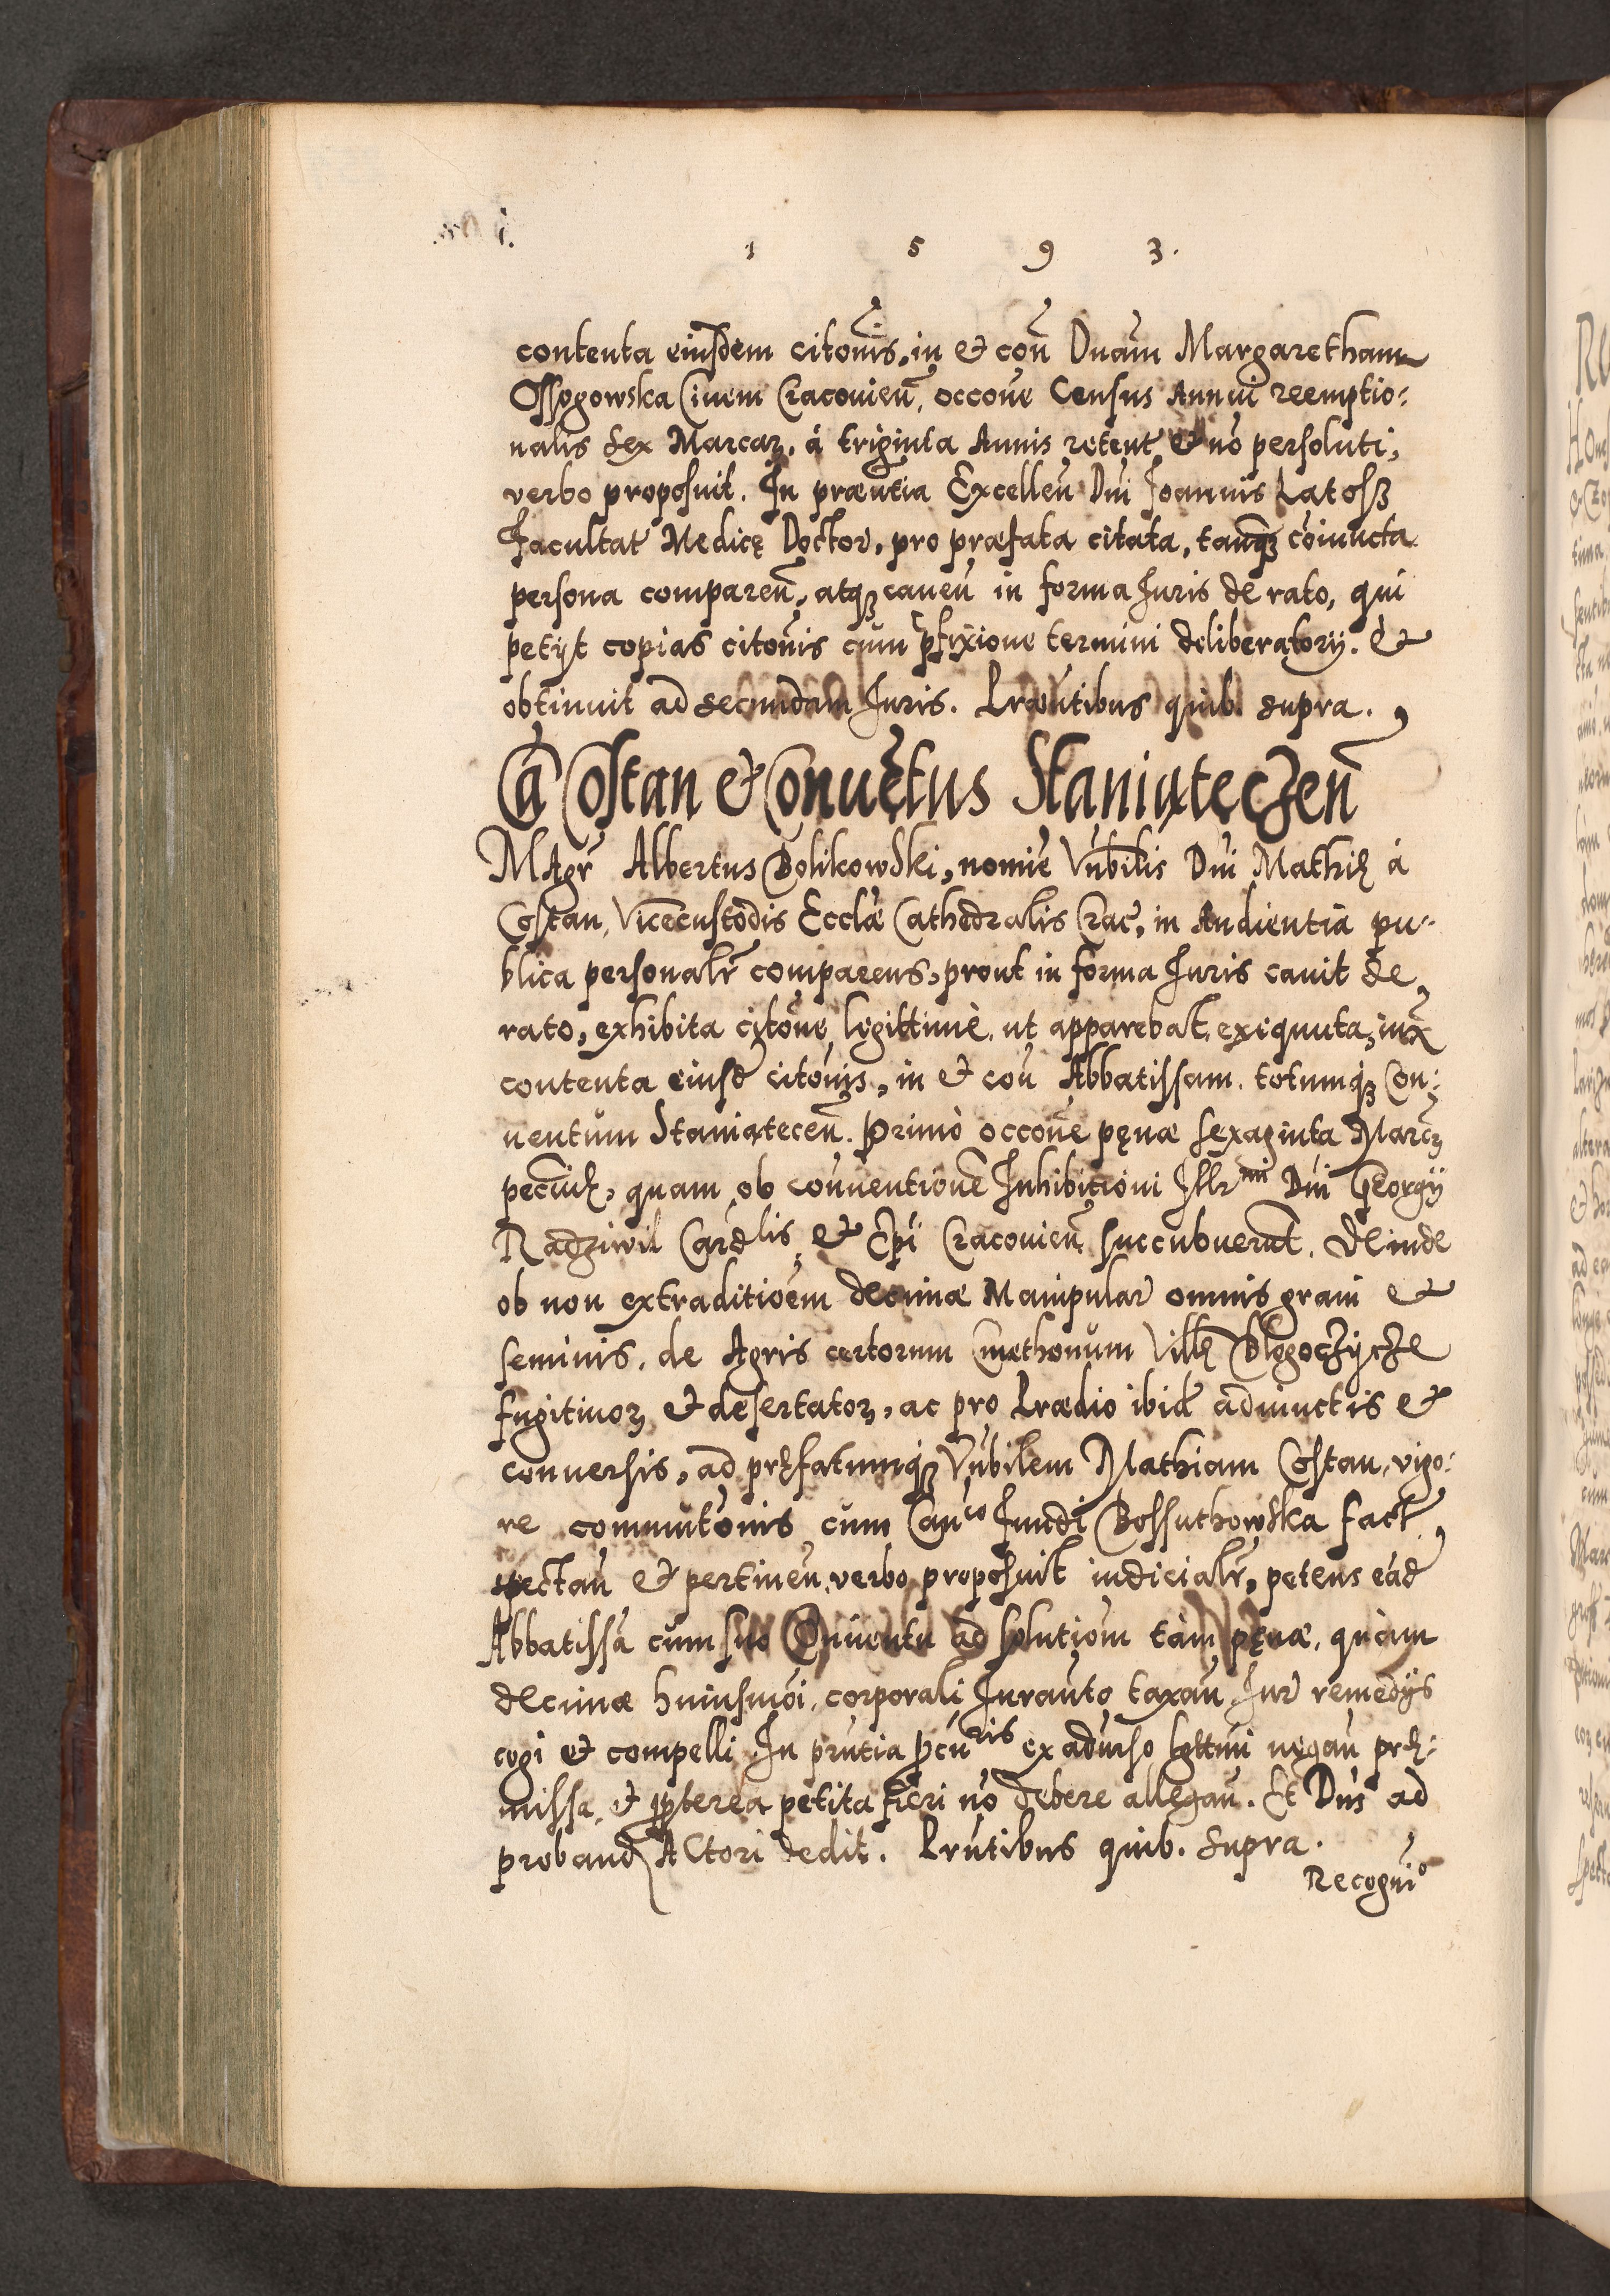 1 5 9 3.
contenta eiusdem citōnis, in et cōn Dnām Margaretham
Ossogowska Civem Cracovień, occōne Census Annui reemptio:
nalis sex Marcaꝝ, á triginta Annis retent et nō persoluti,
verbo proposuit. In præntia Excelleñ Dni Joannis Latosz
Facultat Medicę Doctor, pro præfata citata, tanqꝫ cōiuncta
persona compareñ, atqꝫ caveñ in forma Juris de rato, qui
petijt copias citōnis cum pfixione termini deliberatorij. et
obtinuit ad secundam Juris. Præntibus quib. supra.
Cā Costan et Convētus Staniąteczeñ
MAgr̄ Albertus Bolikowski, nomīe Vnbilis Dni Mathię á
Costan, Vicecustodis Ecclæ Cathedralis Crac̄, in Audientia pu:
blica personalr̄ comparens, prout in forma Juris cavit de
rato, exhibita citōne legittimè, ut apparebat, exequuta, iux̄
contenta eiusd citōnis, in et cōn Abbatissam totumqꝫ Con:
uentum Staniąteceñ. Primò occōne pęnæ sexaginta Marcꝫ
pecūię, quam ob conuentionē Inhibitioni Illr̄mi Dni Georgij
Radziwil Cardlis et Ep̄i Cracovieñ succubuerūt. Deinde
ob non extraditiōem decimæ Manipular omnis grani et
seminis, de Agris certorum Cmethonum Villę Blogoczycze
fugitiuoꝝ et desertatoꝝ, ac pro Prædio ibid adiunctis et
conuersis, ad pręfatumqꝫ Vnbilem Mathiam Costan, vigo:
re commutōnis cum Cancō Fundi Bossuthowska fact,
spectañ et pertineñ, verbo proposuit iudicialr̄, petens eād
Abbatissā cum suo Conuentu ad solutiōm tàm pęnæ, quàm
decimæ huiusmōi, corporali Jurañto taxañ Jur remedijs
cogi et compelli. In pr̄ntia pcuris ex adverso lgttimi negañ prę:
missa, et ppterea petita fieri nō debere allegañ. Et Dns ad
proband Actori dedit. Prntibus quib. supra.
Recogni⁰